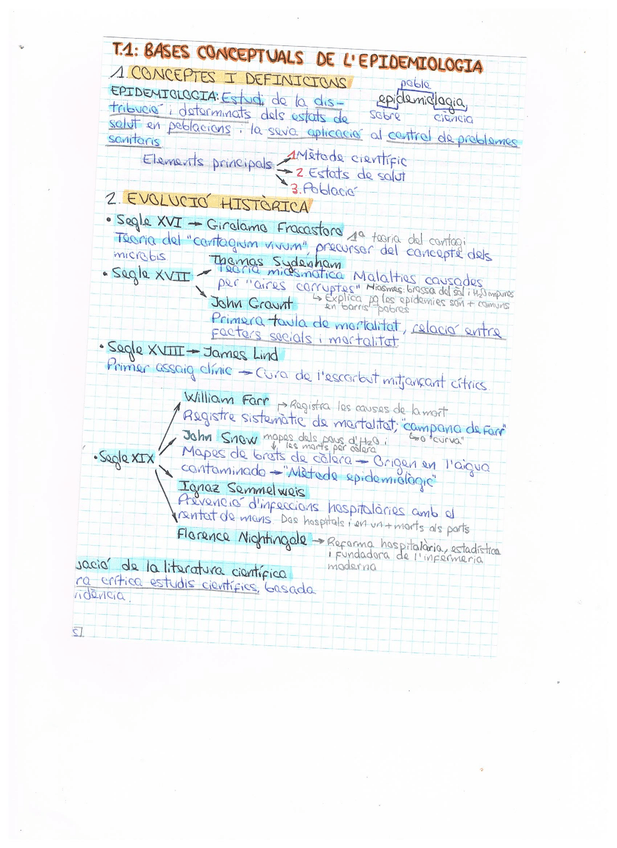 T.1: BASES CONCEPTUALS DE L'EPIDEMIOLOGIA
1. CONCEPTES I DEFINICIONS
EPIDEMIOLOGIA: Estudi de la dis-
tribució i determinats dels estats de
salut en poblacions i la seva aplicació al control de problemes
sanitaris
poble
epidemiologia
sobre ciència
Elements principals
1. Mètode científic
2. Estats de salut
3. Població
2. EVOLUCIÓ HISTÒRICA
• Segle XVI → Girolamo Fracastoro 1ª teoria del contagi
Teoria del "contagium vivum", precursor del concepte dels
microbis
• Segle XVII
Thomas Sydenham
Teoria miasmàtica Malalties causades
per "aires corruptes" Miasmes: brossa del sòl i H2O impures
↳ Explica pq les epidèmies són + comuns
en barris pobres
John Graunt
Primera taula de mortalitat, relació entre
factors socials i mortalitat
• Segle XVIII → James Lind
Primer assaig clínic → Cura de l'escorbut mitjançant cítrics
• Segle XIX
William Farr → Registra les causes de la mort
Registre sistemàtic de mortalitat, "campana de Farr"
↳ o "curva"
John Snow mapes dels pous d'H2O i
↓ les morts per còlera
Mapes de brots de còlera → Origen en l'aigua
contaminada → "Mètode epidemiològic"
Ignaz Semmelweis
Prevenció d'infeccions hospitalàries amb el
rentat de mans Dos hospitals i en un + morts als parts
Florence Nightingale → Reforma hospitalària, estadística
i fundadora de l'infermeria
moderna
uació de la literatura científica
ra crítica estudis científics, basada
idència